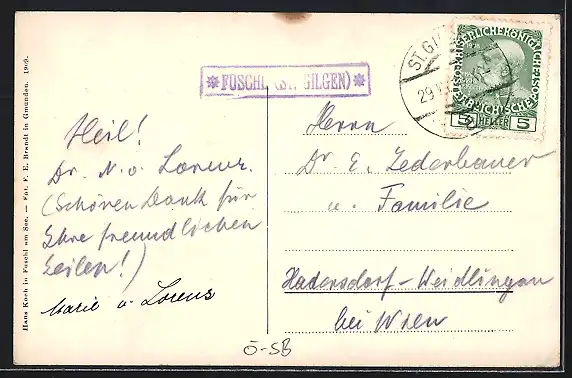 Hans Koch in Fuschl am See. — Fot. F. E. Brandt in Gmunden. 1909.
* FUSCHL (ST. GILGEN) *
ST. GI
29
KAISERLICHE KÖNIGLICHE
ÖSTERREICHISCHE POST
5 HELLER 5
Heil!
Dr. N. v. Lorenz.
(Schönen Dank für
Ihre freundlichen
Zeilen!)
Marie v. Lorenz
Herrn
Dr. E. Zederbauer
u. Familie
Hadersdorf-Weidlingau
bei Wien
Ö-SB